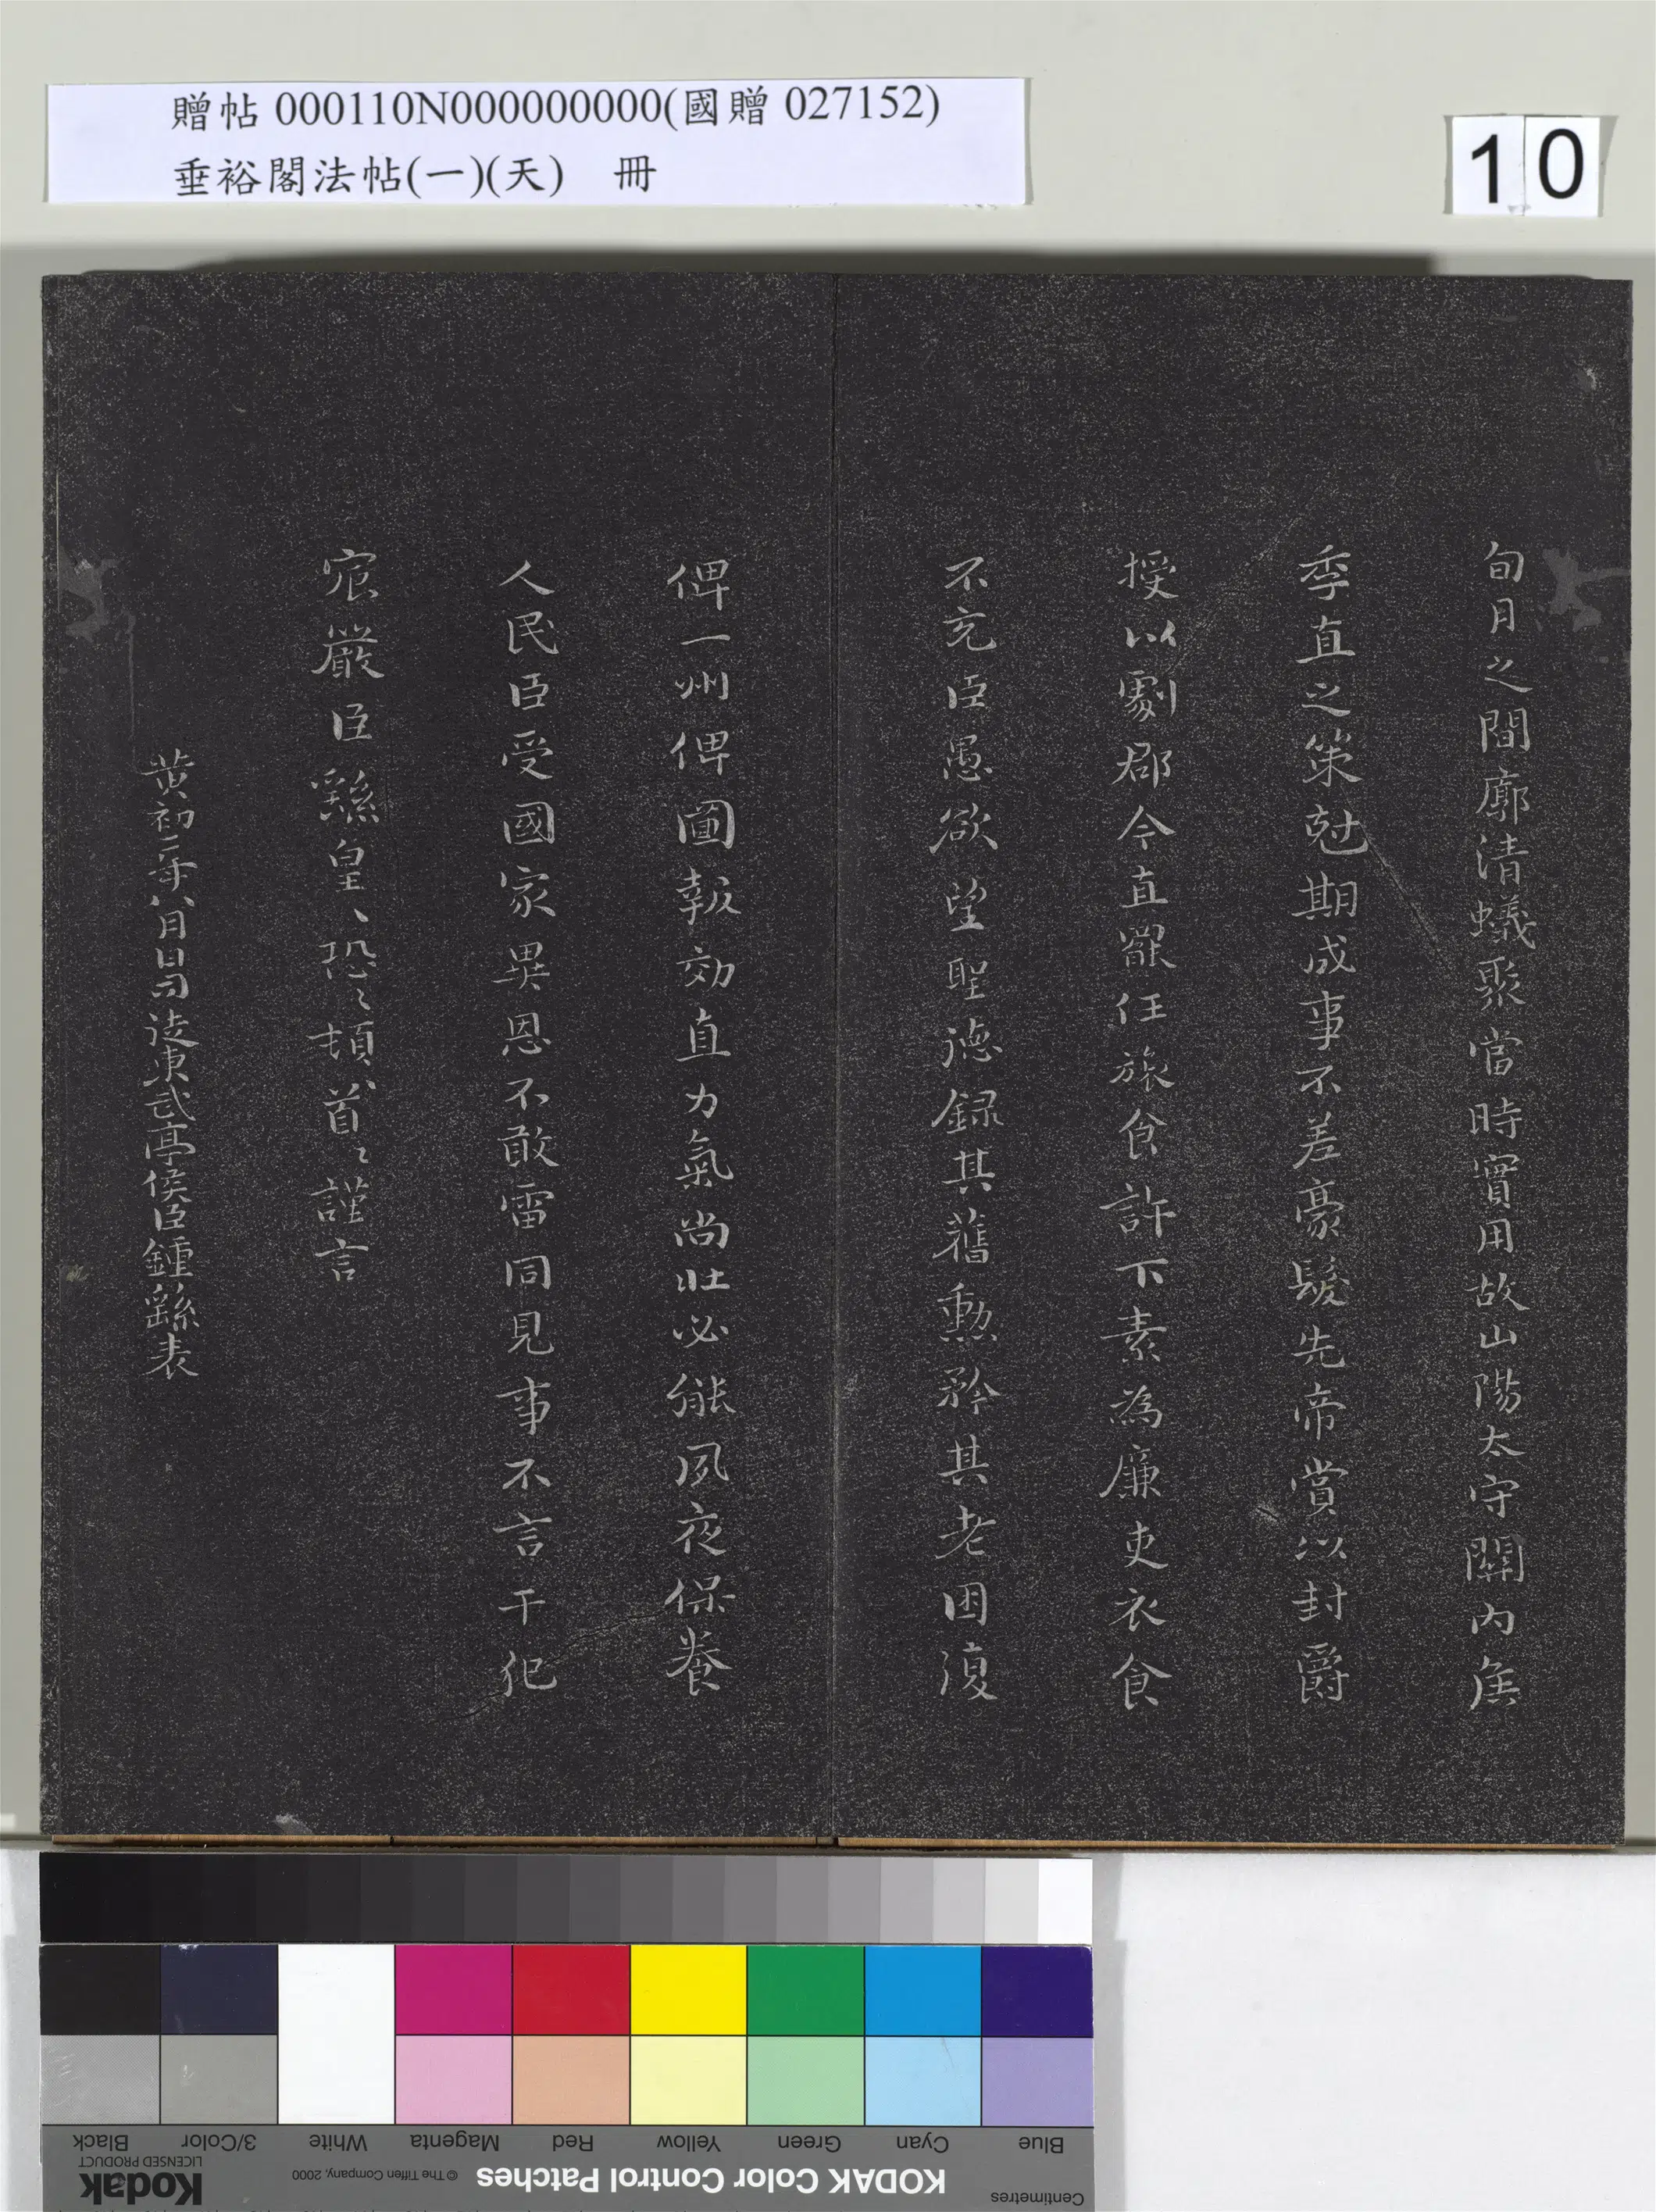 贈帖 000110N000000000(國贈 027152)
垂裕閣法帖(一)(天) 冊
10
旬月之間廓清蟻聚當時實用故山陽太守關內侯
季直之策尅期成事不差豪髮先帝賞以封爵
授以劇郡今直罷任旅食許下素為廉吏衣食
不充臣愚欲望聖德錄其舊勳矜其老困復
俾一州俾圖報効直力氣尚壯必能夙夜保養
人民臣受國家異恩不敢雷同見事不言干犯
宸嚴臣繇皇〻恐〻頓首〻謹言
黃初二年八月日司徒東武亭侯臣鍾繇表
Black
3/Color
White
Magenta
Red
Yellow
Green
Cyan
Blue
Kodak
LICENSED PRODUCT
© The Tiffen Company, 2000
KODAK Color Control Patches
Centimetres